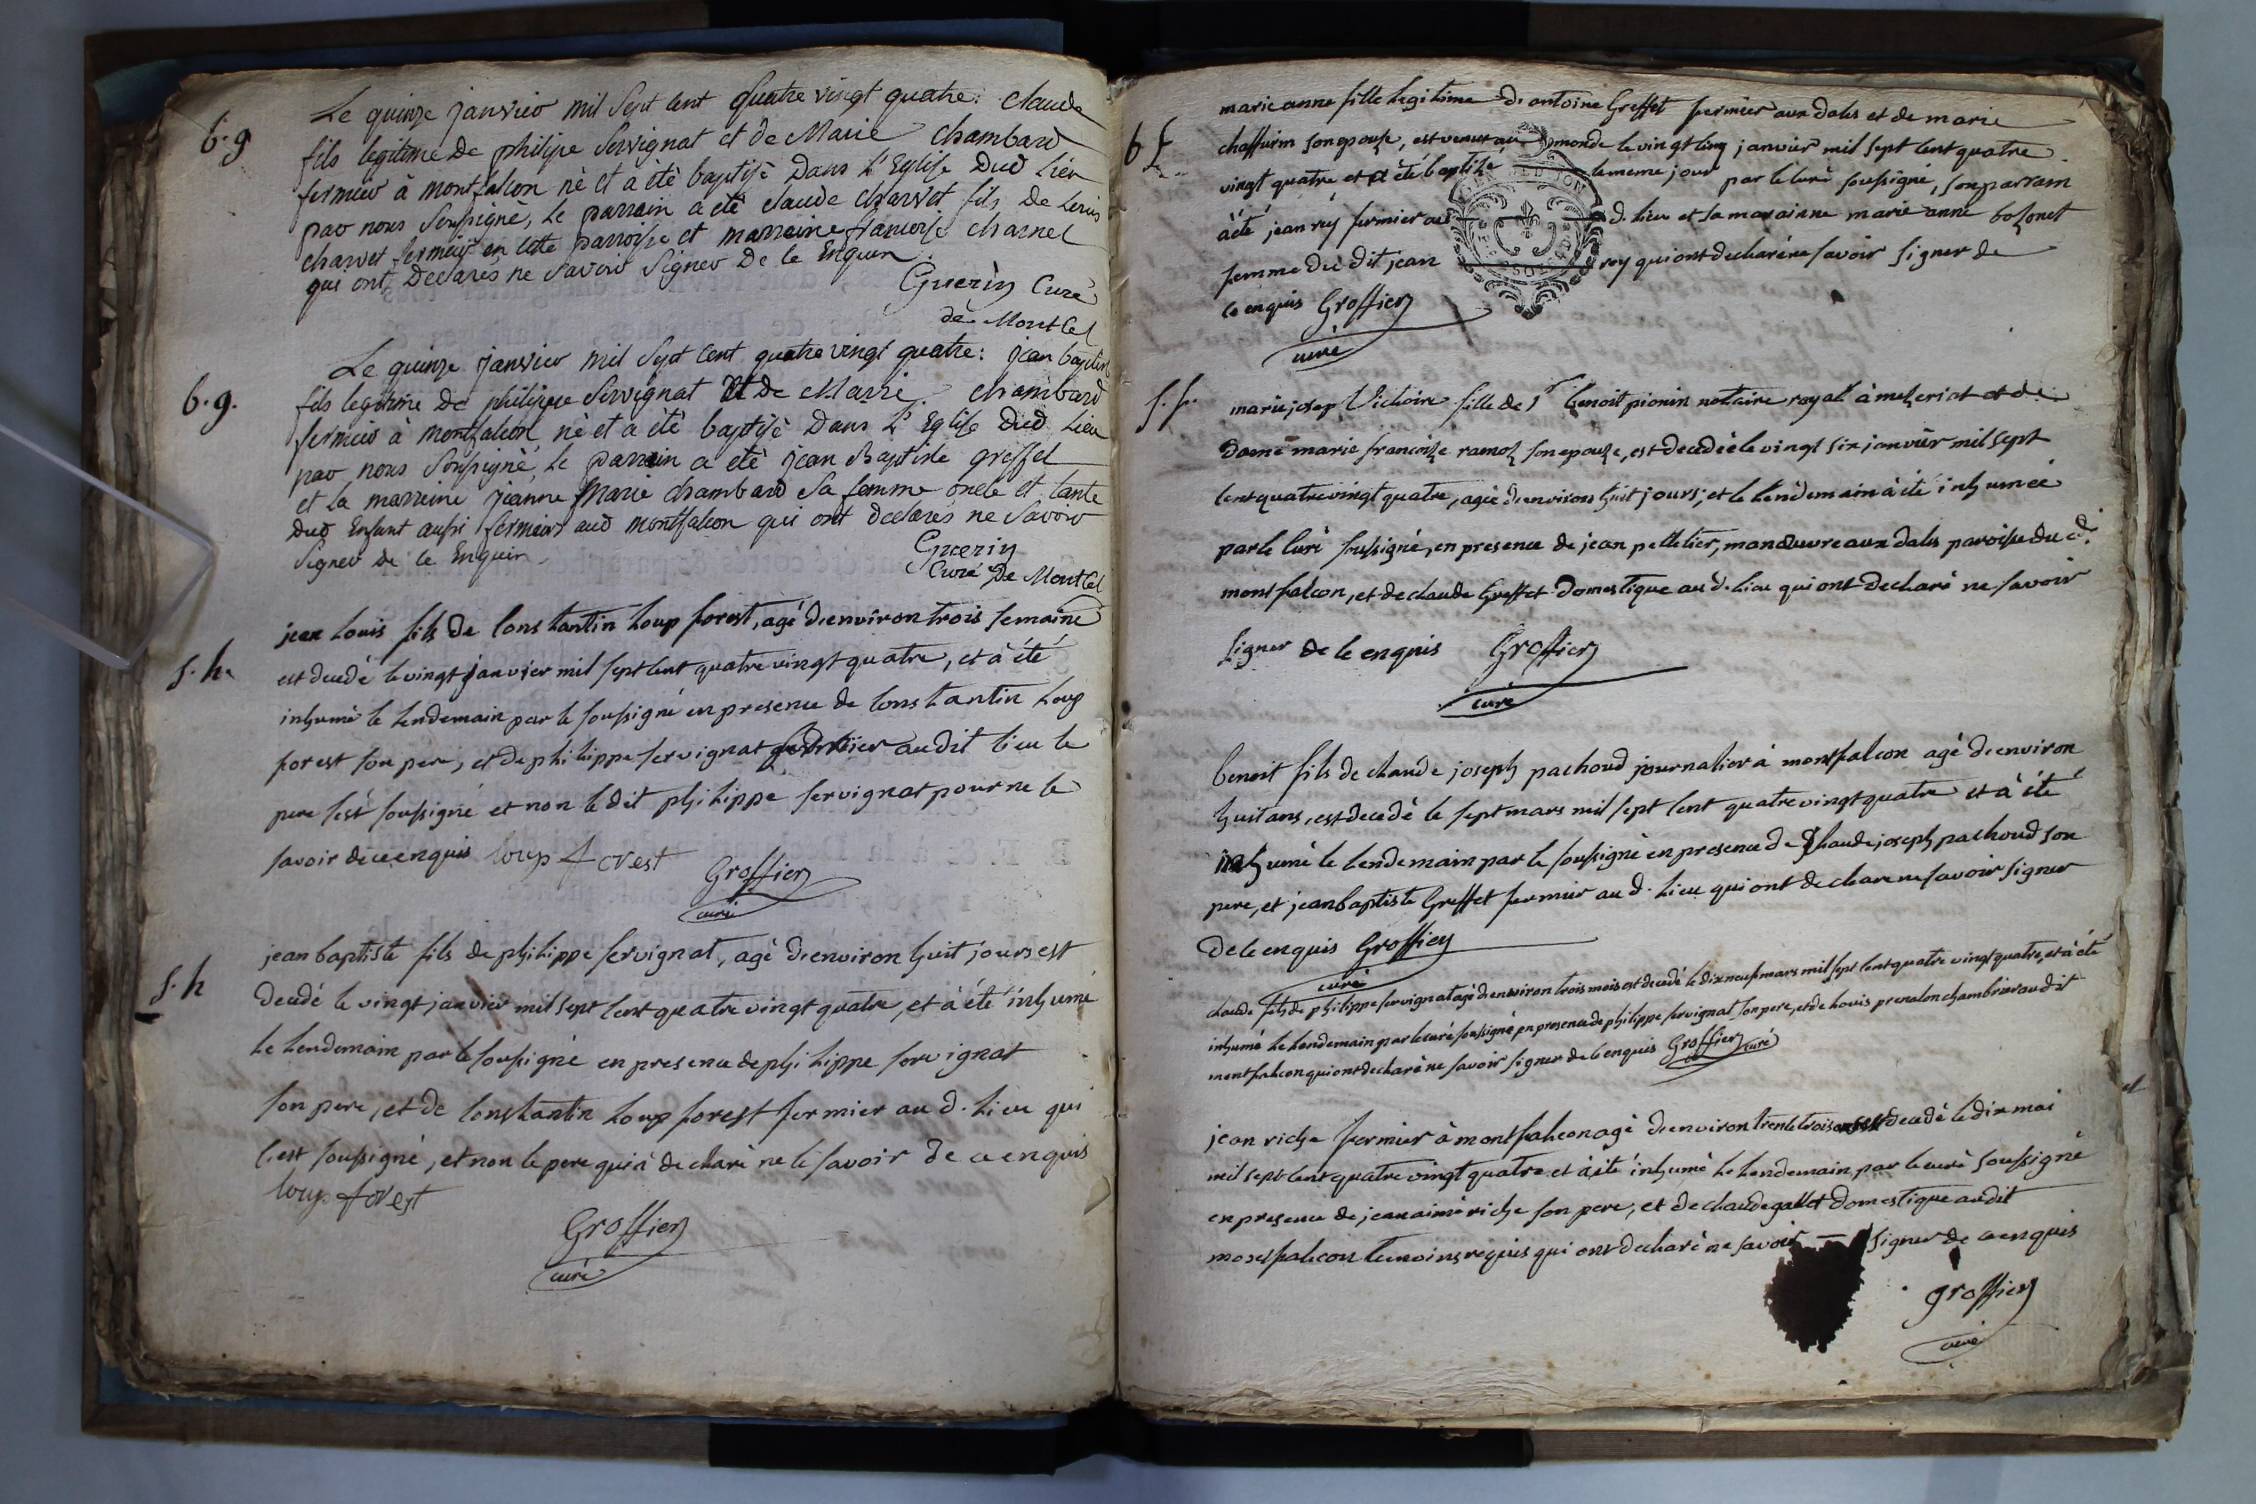 b. g
Le quinze janvier mil Sept Cent Quatre vingt quatre: Claude
fils legitime De philipe Servignat et de Marie Chambard
fermier à montfalcon nè et a ètè baptisè Dans L'Eglise Dud Lieu
par nous Soussignè, Le parrain a etè claude charvet fils De Louis
charvet fermier en cette parroisse et marreine francoise charnel
qui ont Declarès ne Savoir Signer De ce Enquis
Guerin Curè
de Montcel
b. g.
Le quinze janvier mil Sept Cent quatre vingt quatre: jean baptiste
fils legitime De philippe Servignat et de Marie Chambard
fermier à montfalcon nè et a ètè baptisè Dans L'Eglise Dud Lieu
par nous Soussignè, Le parrain a etè jean baptiste greffet
et La marreine jeanne Marie chambard Sa femme oncle et tante
Dud Enfant aussi fermiers aud montfalcon qui ont declarès ne Savoir
Signer De ce Enquis
Guerin
Curè De Montcel
s. h.
jean Louis fils de Constantin Loup forest, agé d'environ trois semaine
est decedé le vingt janvier mil sept cent quatre vingt quatre, et à été
inhumé le lendemain par le soussigné en presence de Constantin Loup
forest son pere, et de philippe servignat fermier au dit lieu le
pere s'est soussigné et non le dit philippe servignat pour ne le
savoir de ce enquis loup forest
Groffier
curé
s. h
jean baptiste fils de philippe servignat, agé d'environ huit jours est
decedé le vingt janvier mil sept cent quatre vingt quatre, et à été inhumé
le lendemain par le soussigné en presence de philippe servignat
son pere, et de Constantin Loup forest fermier au d. lieu qui
s'est soussigné, et non le pere qui à declaré ne le savoir de ce enquis
loup forest
Groffier
curé
b f.
marie anne fille legitime d'antoine Greffet fermier aux dales et de marie
son epouse, est venue au monde le vingt cinq janvier mil sept cent quatre
vingt quatre et a été baptisé le meme jour par le curé soussigné, son parrain
à été jean rey fermier au d. lieu et sa marainne marie anne bozonet
femme du dit jean rey qui ont declaré ne savoir signer de
ce enquis Groffier
curé
s. f.
marie josep Victoire fille de Sr benoit pionin notaire royal à mezeriat et de
dame marie françoise ramoz son epouse, est decedée le vingt six janvier mil sept
cent quatre vingt quatre, agée d'environ huit jours; et le lendemain à été inhumée
par le curé soussigné, en presence de jean pelletier, manoeuvre aux dales paroisse du d.
montfalcon, et de claude Greffet domestique au d. lieu qui ont declaré ne savoir
signer de ce enquis Groffier
curé
benoit fils de claude joseph pachoud journalier à montfalcon agé d'environ
huit ans, est decedé le sept mars mil sept cent quatre vingt quatre et à été
inhumé le lendemain par le soussigné en presence de Claude joseph pachoud son
pere, et jean baptiste Greffet fermier au d. lieu qui ont declaré ne savoir signer
de ce enquis Groffier
curé
claude fils de philippe servignat agé d'environ trois mois est decedé le dix neuf mars mil sept cent quatre vingt quatre, et à été
inhumé le lendemain par le curé soussigné en presence de philippe servignat son pere, et de Louis chambrier au dit
montfalcon qui ont declaré ne savoir signer de ce enquis Groffier curé
et
jean riche fermier à montfalcon agé d'environ trente trois ans est decedé le dix mai
mil sept cent quatre vingt quatre et à été inhumé le lendemain, par le curé soussigné
en presence de jean aimé riche son pere, et de claude gallet domestique au dit
montfalcon temoins requis qui ont declaré ne savoir — signer de ce enquis
groffier
curé